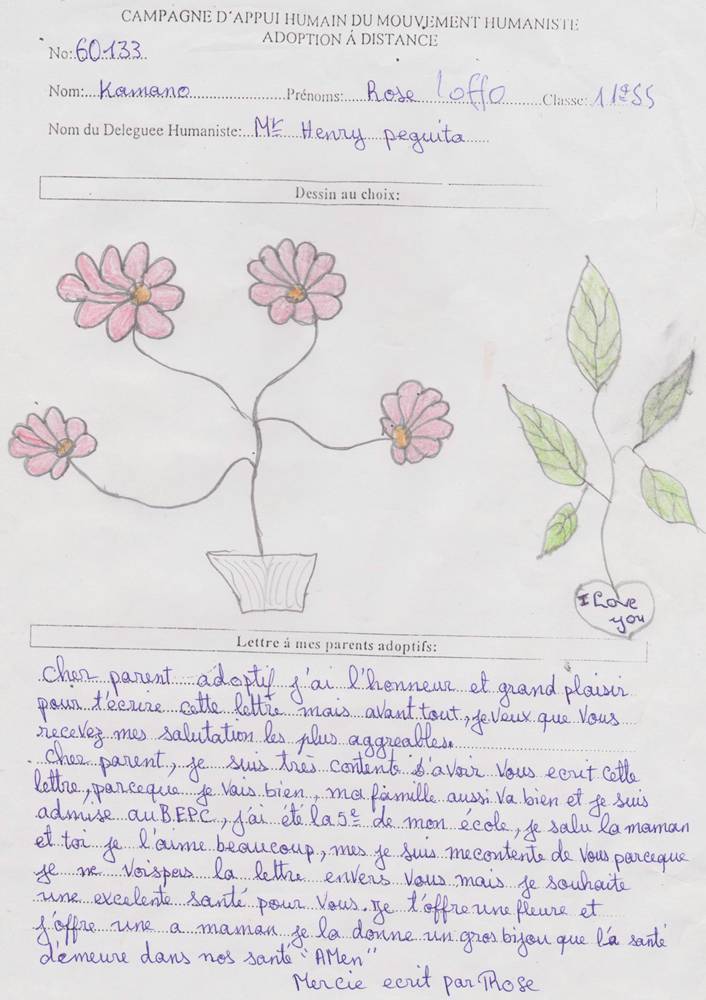 CAMPAGNE D'APPUI HUMAIN DU MOUVEMENT HUMANISTE
ADOPTION Á DISTANCE
No: 60133
Nom: Kamano Prénoms: Rose Loffo Classe: 11eSS
Nom du Deleguee Humaniste: Mr Henry peguita
Dessin au choix:
I Love
you
Lettre á mes parents adoptifs:
cher parent adoptif j'ai l'honneur et grand plaisir
pour t'écrire cette lettre mais avant tout, je veux que vous
recevez mes salutation les plus aggreables.
cher parent, je suis très contente d'avoir vous ecrit cette
lettre, parceque je vais bien, ma famille aussi va bien et je suis
admise au B.E.P.C, j'ai été la 5e de mon école, je salu la maman
et toi je l'aime beaucoup, mes je suis mecontente de vous parceque
je ne vois pas la lettre envers vous mais je souhaite
une excelente santé pour vous. je t'offre une fleure et
j'offre une a maman je la donne un gros bijou que l'a santé
demeure dans nos santé "AMen"
Mercie ecrit par Rose